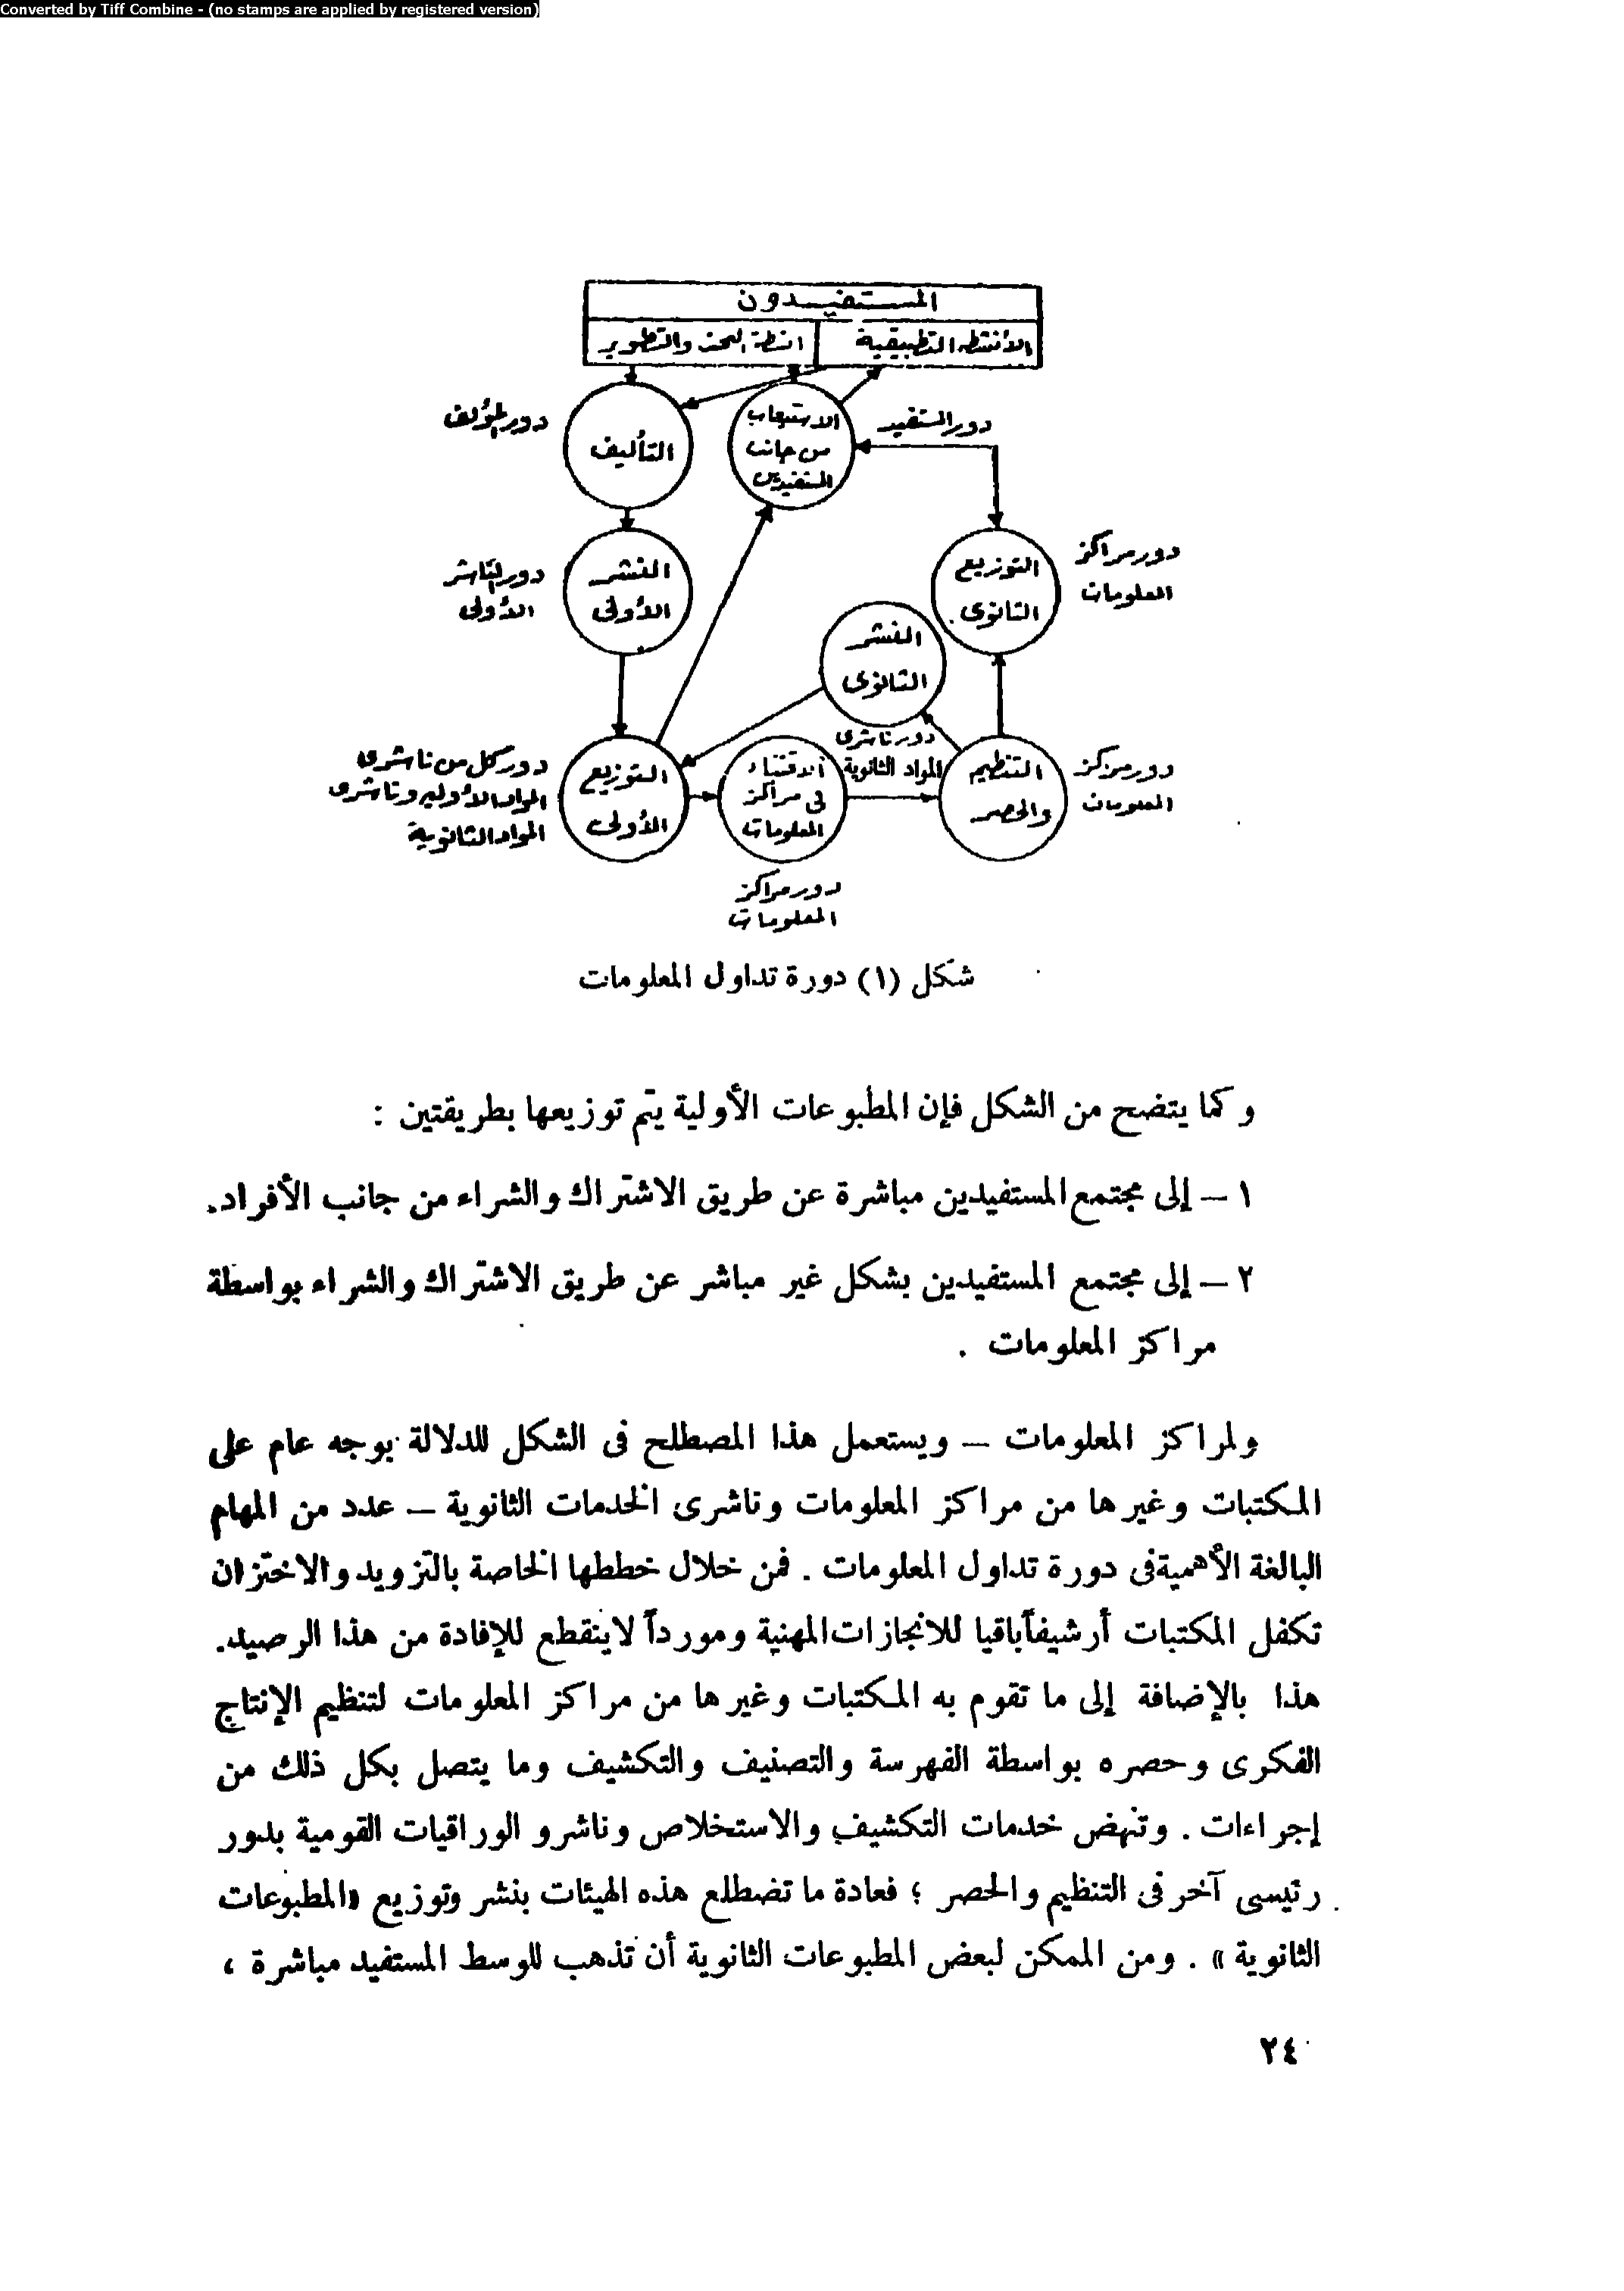 Converted by Tiff Combine - (no stamps are applied by registered version)
المستفيدون
الأنشطة التطبيقية
انشطة البحث والتطوير
دور المؤلف
التأليف
الاستيعاب
من جانب
المستفيدين
دور المستفيد
دور الناشر
الأولى
النشر
الأولى
التوزيع
الثانوى
دور مراكز
المعلومات
النشر
الثانوى
دور ناشرى
المواد الثانوية
دور كل من ناشرى
المواد الأولية وناشرى
المواد الثانوية
التوزيع
الأولى
الاقتناء
فى مراكز
المعلومات
التنظيم
والحصر
دور مركز
المعلومات
دور مراكز
المعلومات
شكل (١) دورة تداول المعلومات
وكما يتضح من الشكل فإن المطبوعات الأولية يتم توزيعها بطريقتين :
١ – إلى مجتمع المستفيدين مباشرة عن طريق الاشتراك والشراء من جانب الأفراد.
٢ – إلى مجتمع المستفيدين بشكل غير مباشر عن طريق الاشتراك والشراء بواسطة
مراكز المعلومات .
ولمراكز المعلومات – ويستعمل هذا المصطلح فى الشكل للدلالة بوجه عام على
المكتبات وغيرها من مراكز المعلومات وناشرى الخدمات الثانوية – عدد من المهام
البالغة الأهمية فى دورة تداول المعلومات . فمن خلال خططها الخاصة بالتزويد والاختزان
تكفل المكتبات أرشيفاً باقيا للانجازات المهنية ومورداً لاينقطع للإفادة من هذا الرصيد.
هذا بالإضافة إلى ما تقوم به المكتبات وغيرها من مراكز المعلومات لتنظيم الإنتاج
الفكرى وحصره بواسطة الفهرسة والتصنيف والتكشيف وما يتصل بكل ذلك من
إجراءات . وتنهض خدمات التكشيف والاستخلاص وناشرو الوراقيات القومية بدور
رئيسى آخر فى التنظيم والحصر ؛ فعادة ما تضطلع هذه الهيئات بنشر وتوزيع «المطبوعات
الثانوية » . ومن الممكن لبعض المطبوعات الثانوية أن تذهب للوسط المستفيد مباشرة ،
٢٤